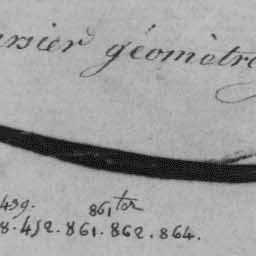 ursier géomètre
439. 861 ter
8. 452. 861. 862. 864.